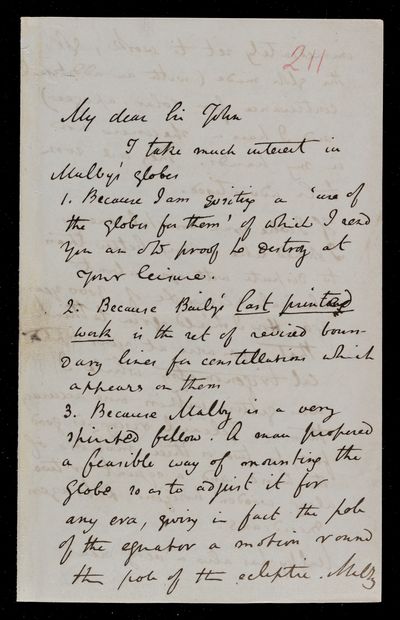 211
My dear Sir John
I take much interest in
Malby's globes
1. Because I am writing a 'use of
the globes for them' of which I send
you an old proof to destroy at
your leisure.
2. Because Baily's last printed
work is the set of revised boun-
dary lines for constellations which
appears on them
3. Because Malby is a very
spirited fellow. A man proposed
a feasible way of mounting the
globe so as to adjust it for
any era, giving in fact the pole
of the equator a motion round
the pole of the ecliptic. Malby